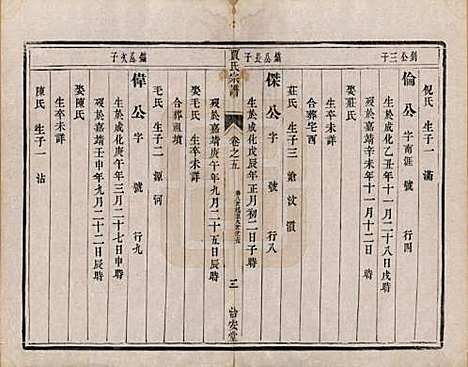 釗公三子
倪氏 生子一 滿
倫公 字南涯 號 行四
生於成化乙丑年十一月二十八日戌時
歿於嘉靖辛未年十一月十二日
娶莊氏
莊氏 生子三 滄 汶 濆
合葬宅西
傑公 字 號 行八
生於成化戊辰年正月初二日子時
賈氏宗譜
卷之五
三
歿於嘉靖庚午年九月二十五日辰時
娶毛氏 生卒未詳
合葬祖墳
毛氏 生子二 源 河
偉公 字 號 行九
生於成化庚午年三月二十七日申時
歿於嘉靖壬申年九月二十二日辰時
娶陳氏
生卒未詳
陳氏 生子 沾